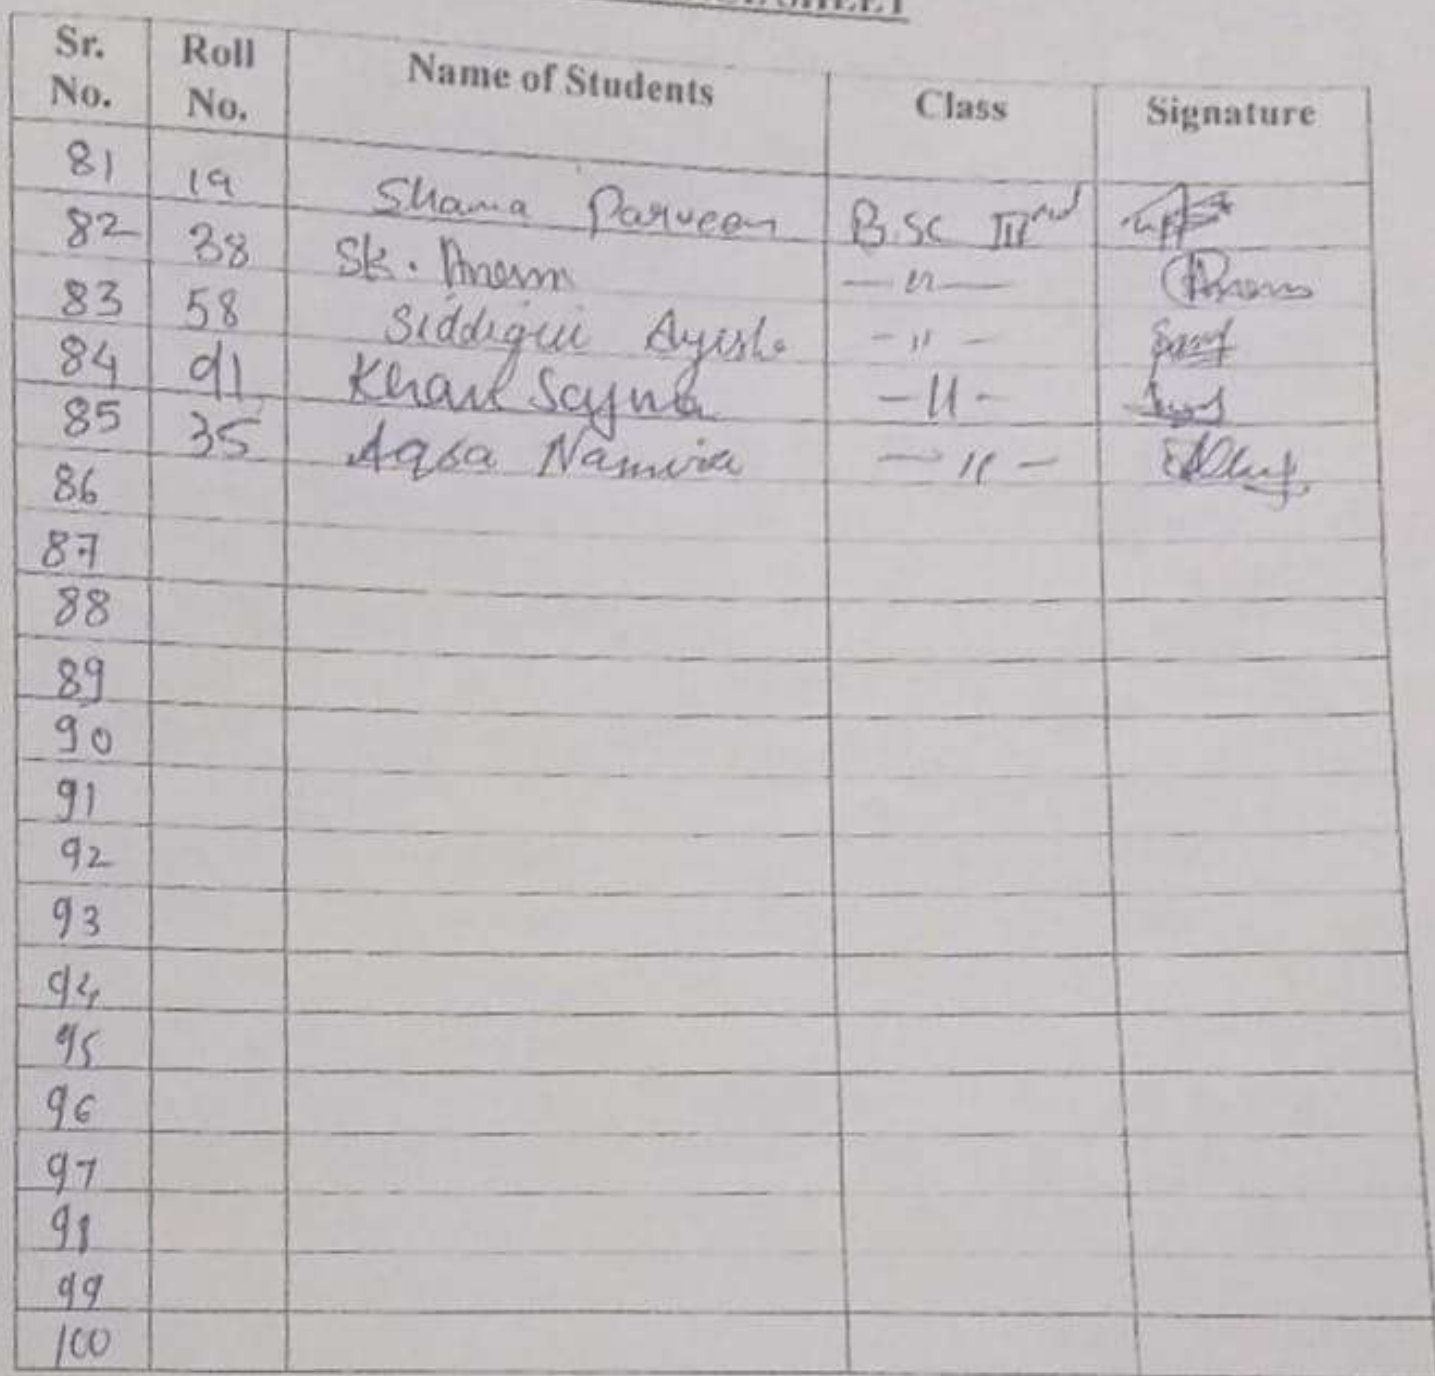 Sr. No. Roll No. Name of Students Class Signature
81 19 Shama Parveen B.Sc III
82 38 Sk. Anem — 11 — Anem
83 58 Siddiqui Ayisha - 11 -
84 91 Khan - 11 -
85 35 Aqsa Namira — 11 -
86
87
88
89
90
91
92
93
94
95
96
97
98
99
100